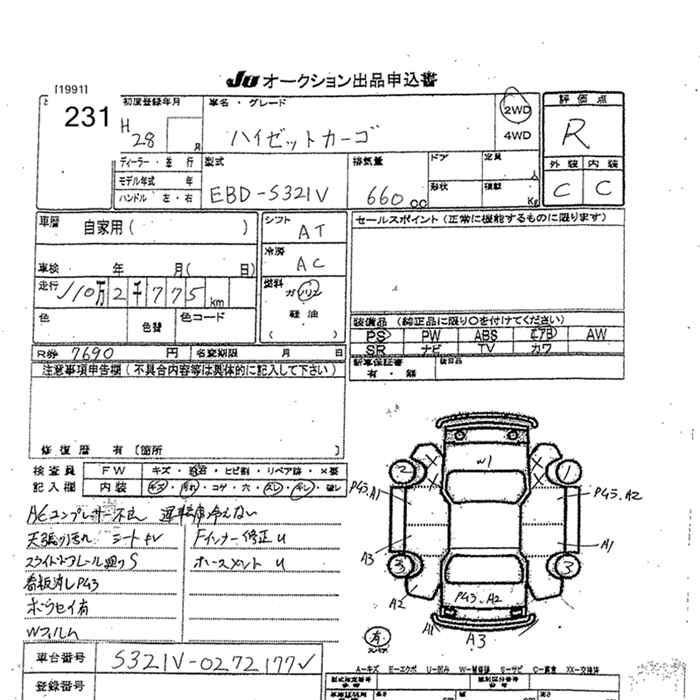 [1991]
JU オークション出品申込書
231
初度登録年月
車名・グレード
2WD
4WD
評価点
H 28
月
ハイゼットカーゴ
R
ディーラー・並行
型式
排気量
ドア
定員
人
外装 内装
モデル年式 年
形状
積載
Kg
ハンドル 左・右
EBD-S321V
660 cc
C C
車歴
自家用( )
シフト
AT
セールスポイント(正常に機能するものに限ります)
冷房
AC
車検 年 月( 日)
走行
10万2千775 km
燃料
ガソリン
軽油
( )
色
色替
色コード
装備品 (純正品に限り○を付けてください)
PS PW ABS エアB AW
SR ナビ TV カワ
R券 7690 円
名変期限 月 日
有・無
注意事項申告欄(不具合内容等は具体的に記入して下さい)
修復歴 有 [箇所 ]
検査員
FW
キズ・飛石・ヒビ割・リペア跡・×要
記入欄
内装
キズ・汚れ・コゲ・穴・スレ・キレ・破レ
ACコンプレッサー不良 運転席冷えない
天張り汚れ シートキレ
Fインナー修正U
スライドドアレール廻りS
ホースメント U
看板消しP43
ボウセイ有
Wフィルム
2
W1
1
P43.A1
P43.A2
A3
A1
3
3
A2
P43.A2
A1
A3
有
車台番号
S321V-0272177
登録番号
A-キズ E-エクボ U-凹み W-補修跡 S-サビ C-腐食 XX-交換済